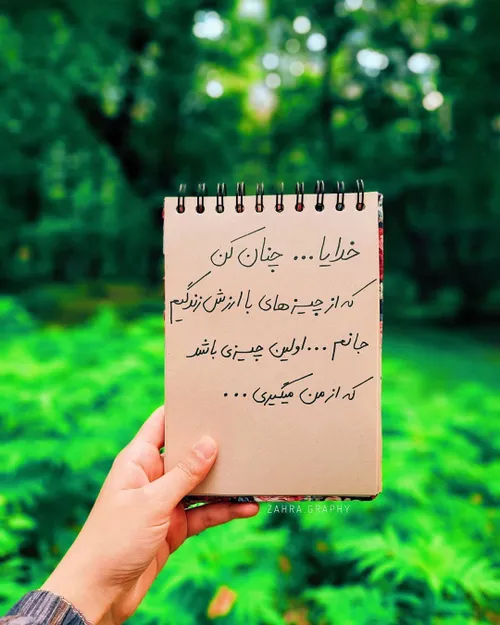 خدایا... چنان کن
که از چیزهای با ارزش زندگیم
جانم ...اولین چیزی باشد
که از من میگیری ...
ZAHRA GRAPHY